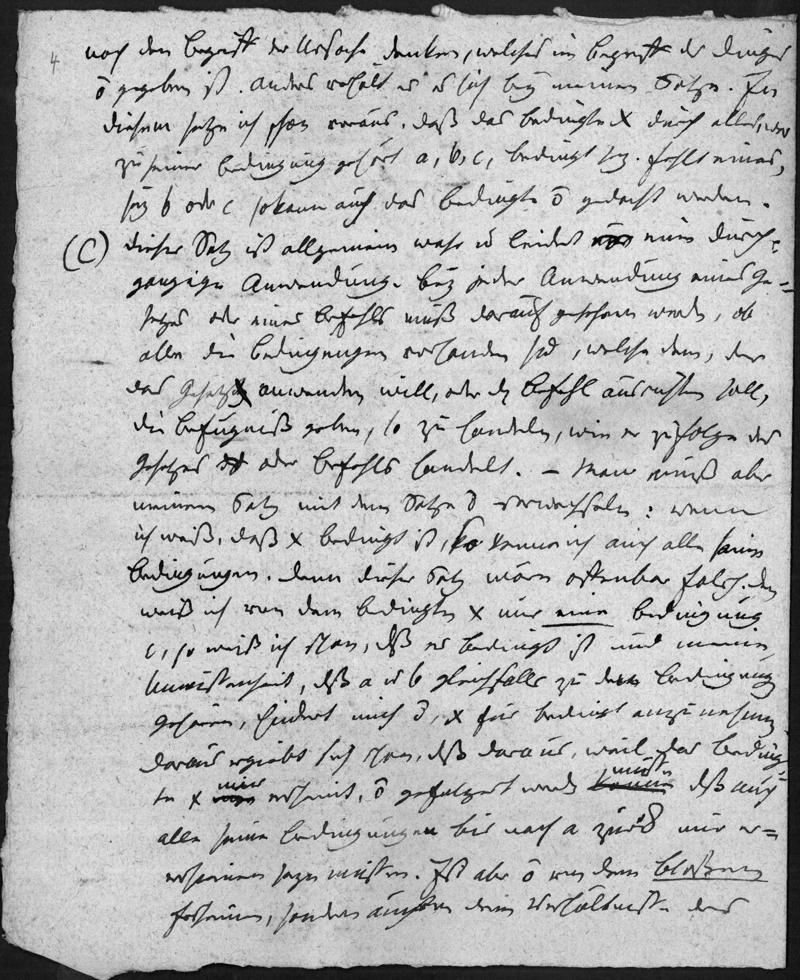 4
noch den Begriff der Ursache denken, welcher im Begriff des Dinges
ō gegeben ist. Anders verhält es sich bey meinem Satze. In
diesem setze ich schon voraus, daß das bedingte X durch alles, was
zu seiner Bedingung gehört a, b, c, bedingt sey. fehlt eines,
sey b oder c so kann auch das bedingte ō gedacht werden.
(C) dieser Satz ist allgemein wahr u leidet eine durch-
gängige Anwendung. Bey jeder Anwendung eines Ge-
setzes oder eines Befehls muß darauf gesehen werden, ob
alle die Bedingungen vorhanden sid, welche dem, der
das Gesetz anwenden will, oder dn Befehl ausrichten soll,
die Befugniß geben, so zu handeln, wie er zufolge des
Gesetzes oder Befehls handelt. – Man muß aber
meinen Satz mit dem Satze ō verwechseln: wenn
ich weiß, daß X bedingt ist, so kenne ich auch alle seine
Bedingungen. denn dieser Satz wäre offenbar falsch. den
weiß ich von dem bedingten X nur eine Bedingung
c, so weiß ich schon, dß es bedingt ist und meine
Unwissenheit, dß a u b gleichfalls zu den Bedingung
gehören, hindert mich ō, X für bedingt anzunehmen
daraus ergiebt sich schon, dß daraus, weil das beding-
te X mir erscheint, ō gefolgert werde müsse dß auch
alle seine Bedingungen bis nach a zurük mir er-
erscheinen müssen. Ist aber ō von dem bloßen
Erscheinen, sondern von dem Verhältniße des